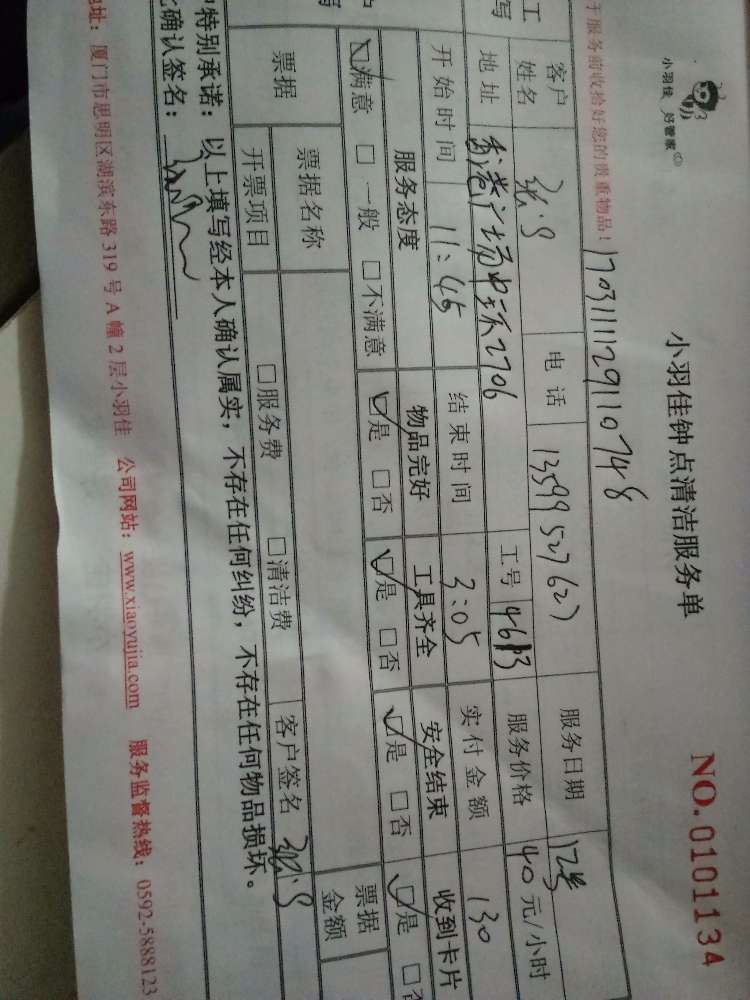 小羽佳 好管家
小羽佳钟点清洁服务单
NO.0101134
于服务前收拾好您的贵重物品！
1703111129110748
工
写
客户
姓名
电话
服务日期 12号
地址
场中环2706
工号
服务价格 40元/小时
开始时间 11:45 结束时间 3:05 实付金额 130
服务态度 物品完好 工具齐全 安全结束 收到卡片
☑满意 □一般 □不满意 ☑是 □否 ☑是 □否 ☑是 □否 ☑是 □
票据 票据名称 票据
金额
开票项目 □服务费 □清洁费 客户签名
特别承诺：以上填写经本人确认属实，不存在任何纠纷，不存在任何物品损坏。
确认签名：
址：厦门市思明区湖滨东路319号A幢2层小羽佳 公司网站：www.xiaoyujia.com 服务监督热线：0592-5888123